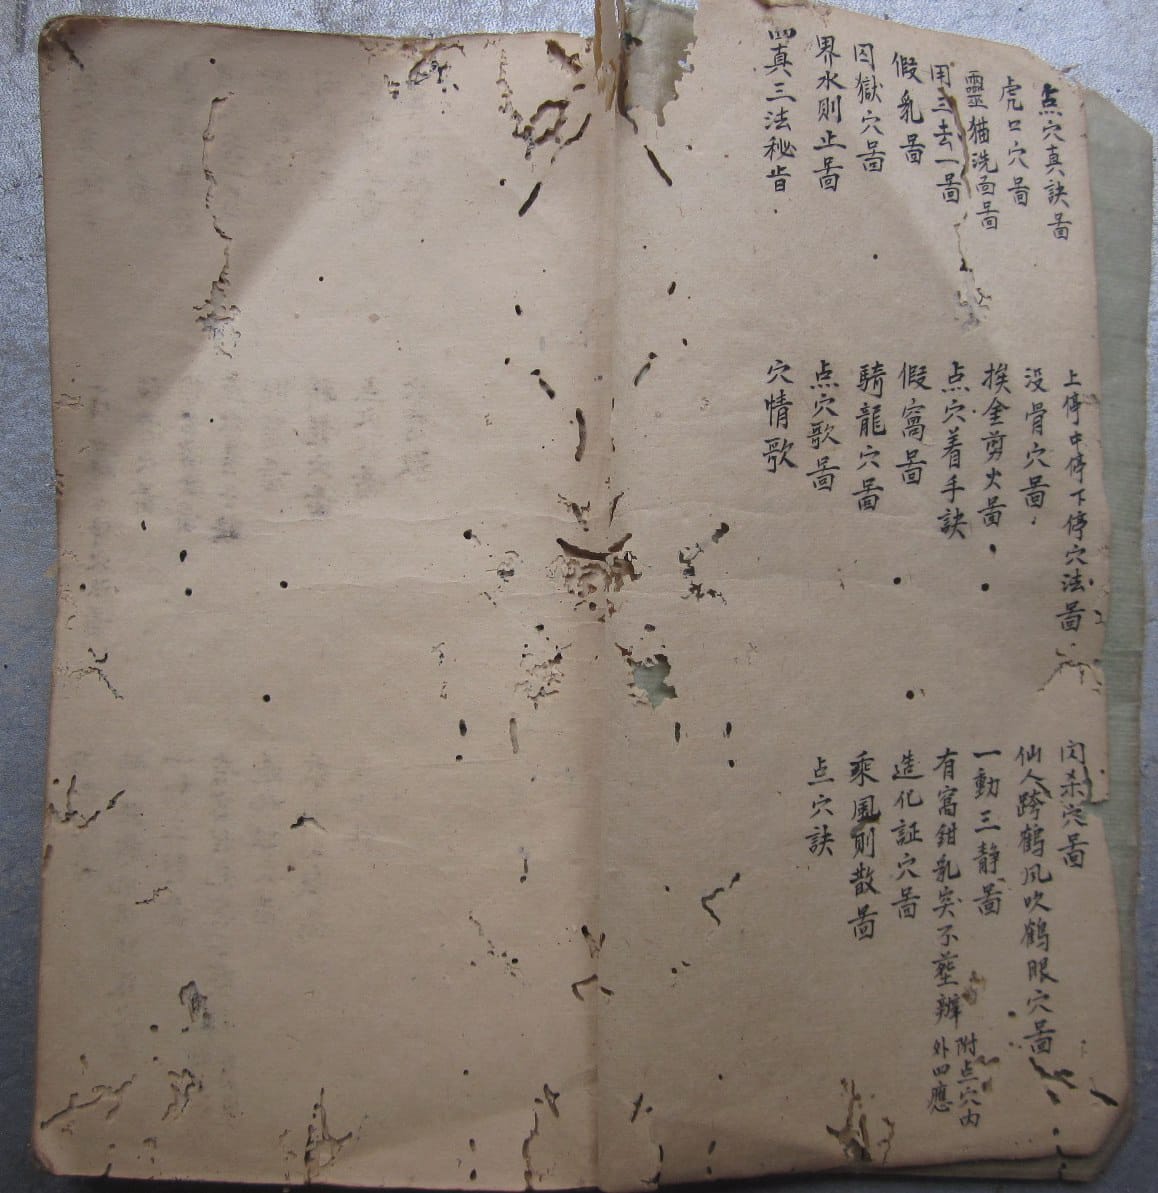 点穴真訣啚
上停中停下停穴法啚
闪杀穴啚
虎口穴啚
没骨穴啚
仙人跨鶴風吹鶴眼穴啚
靈猫洗面啚
挨金剪火啚
一動三静啚
用三去一啚
点穴着手訣
有窩鉗乳突不塟辦
附点穴内
外四應
假乳啚
假窩啚
造化証穴啚
囚獄穴啚
騎龍穴啚
乘風則散啚
界水則止啚
点穴歌啚
点穴訣
四真三法秘旨
穴情歌